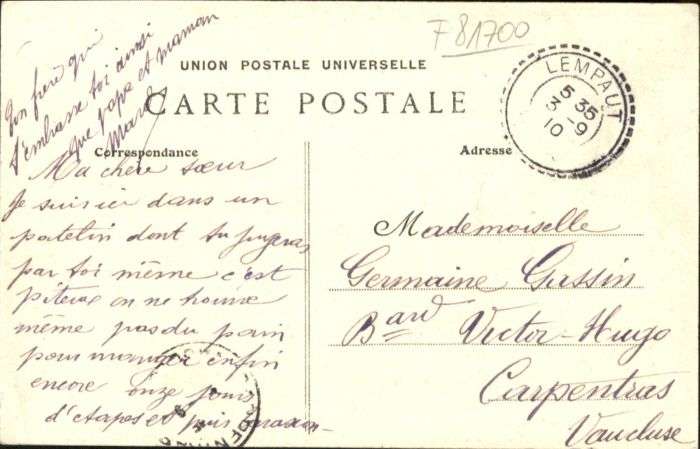 F 81700
UNION POSTALE UNIVERSELLE
CARTE POSTALE
Correspondance
Adresse
LEMPAUT
5 35
3 -9
10
Ma chère sœur
Je suis ici dans un
patelin dont tu jugeras
par toi même c'est
piteux on ne trouve
même pas du pain
pour manger enfin
encore onze jours
d'étapes et puis
Ton frère qui
t'embrasse toi ainsi
que papa et maman
Mademoiselle
Germaine Gassin
Bard Victor-Hugo
Carpentras
Vaucluse